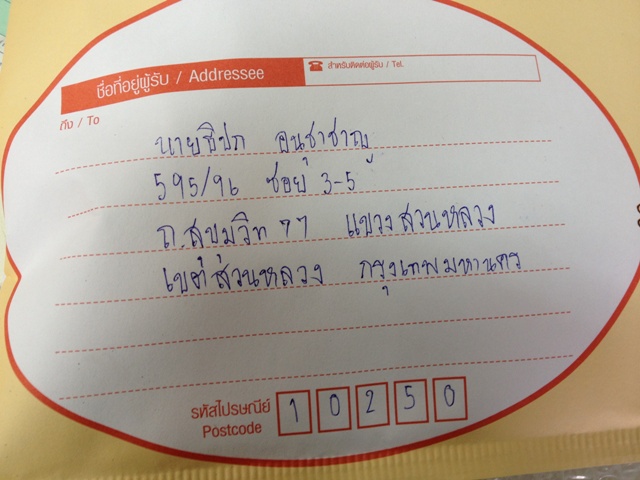 ชื่อที่อยู่ผู้รับ / Addressee
☎ สำหรับติดต่อผู้รับ / Tel.
ถึง / To
นายธิปก อนุชาชาญ
595/96 ซอย 3-5
ถ.สุขุมวิท 77 แขวงสวนหลวง
เขตสวนหลวง กรุงเทพมหานคร
รหัสไปรษณีย์ 10250
Postcode